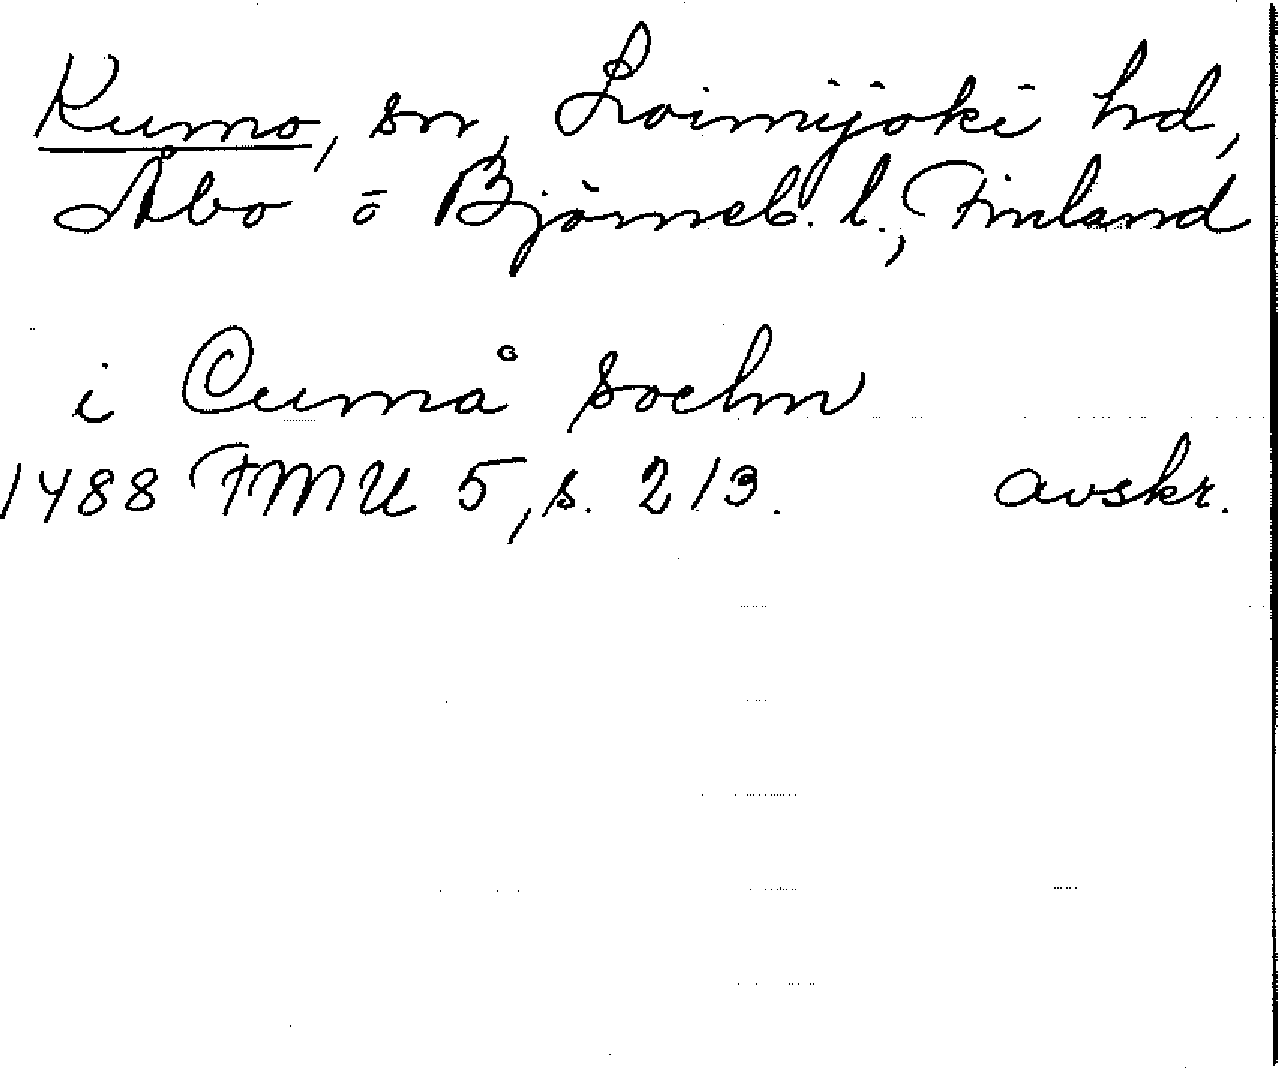 Kumo, sn, Loimijoki hd,
Åbo o Björneb. l., Finland
i Cumå sochn
1488 FMU 5, s. 213. avskr.